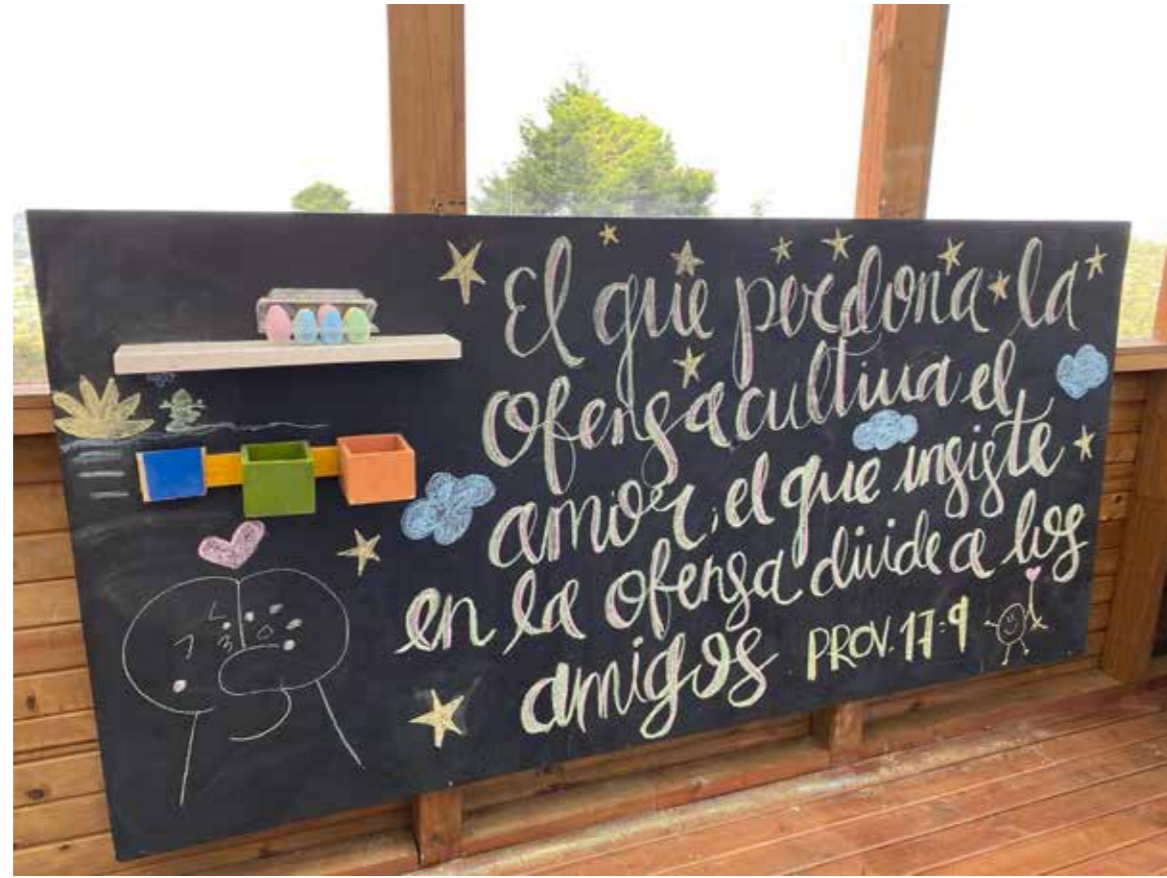 El que perdona la
ofensa cultiva el
amor, el que insiste
en la ofensa divide a los
amigos PROV. 17:9